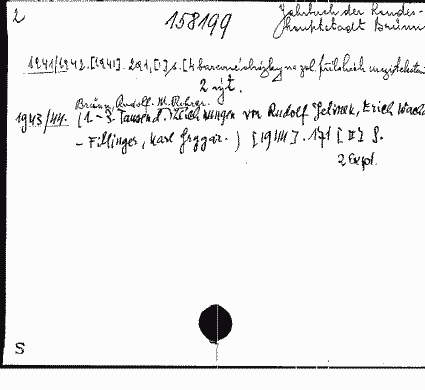 2
158199
Jahrbuch der Landes-
hauptstadt Brünn
1941/1942. [1941]. 291, [1] s. [4 barevné obrázky na zvl. přílohách
2 výt.
Brünn, Rudolf M. Rohrer.
1943/44. (1.-3. Tausend. Zeichnungen von Rudolf Jelinek, Erich
- Fillinger, Karl Grygar.) [1944]. 171 [II] S.
2 Expl.
S